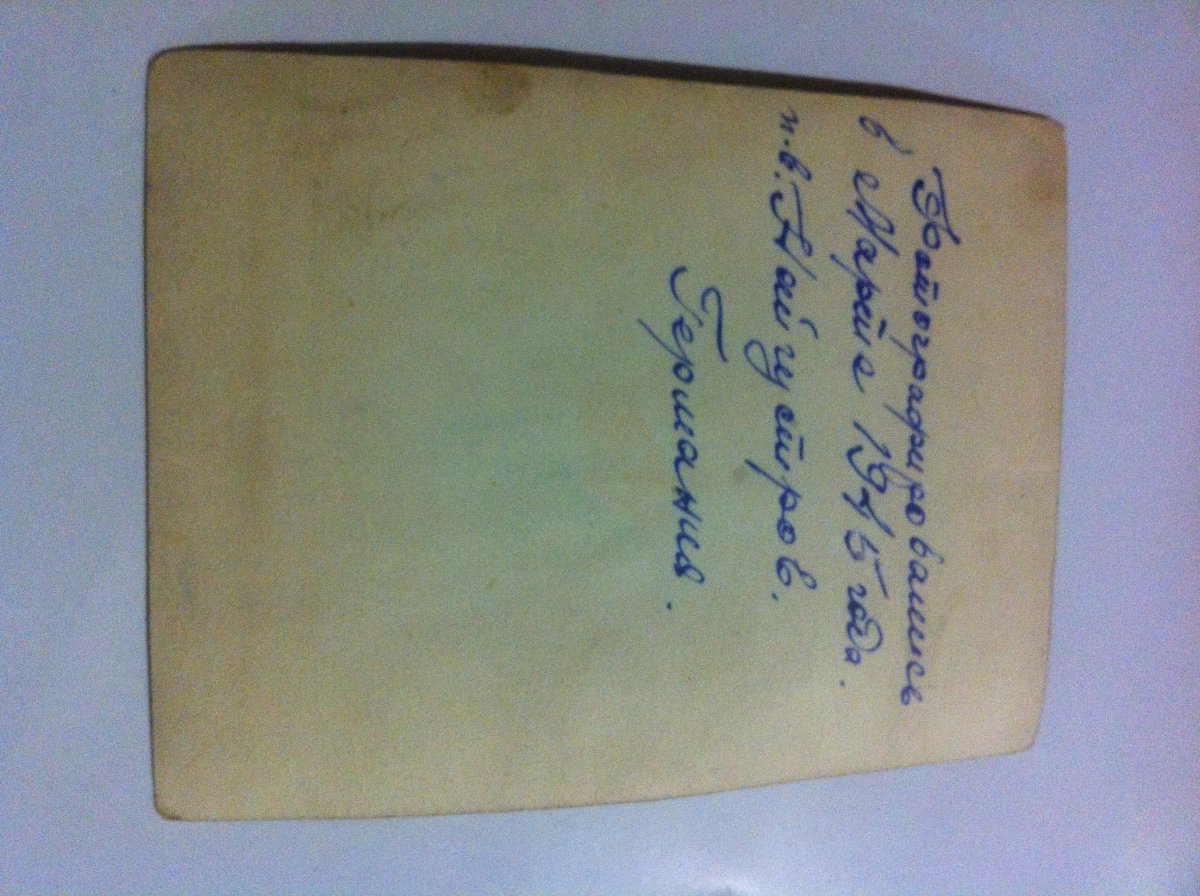 Фотографировались
в Марте 1945 года.
п.в. Найцустров.
Германия.